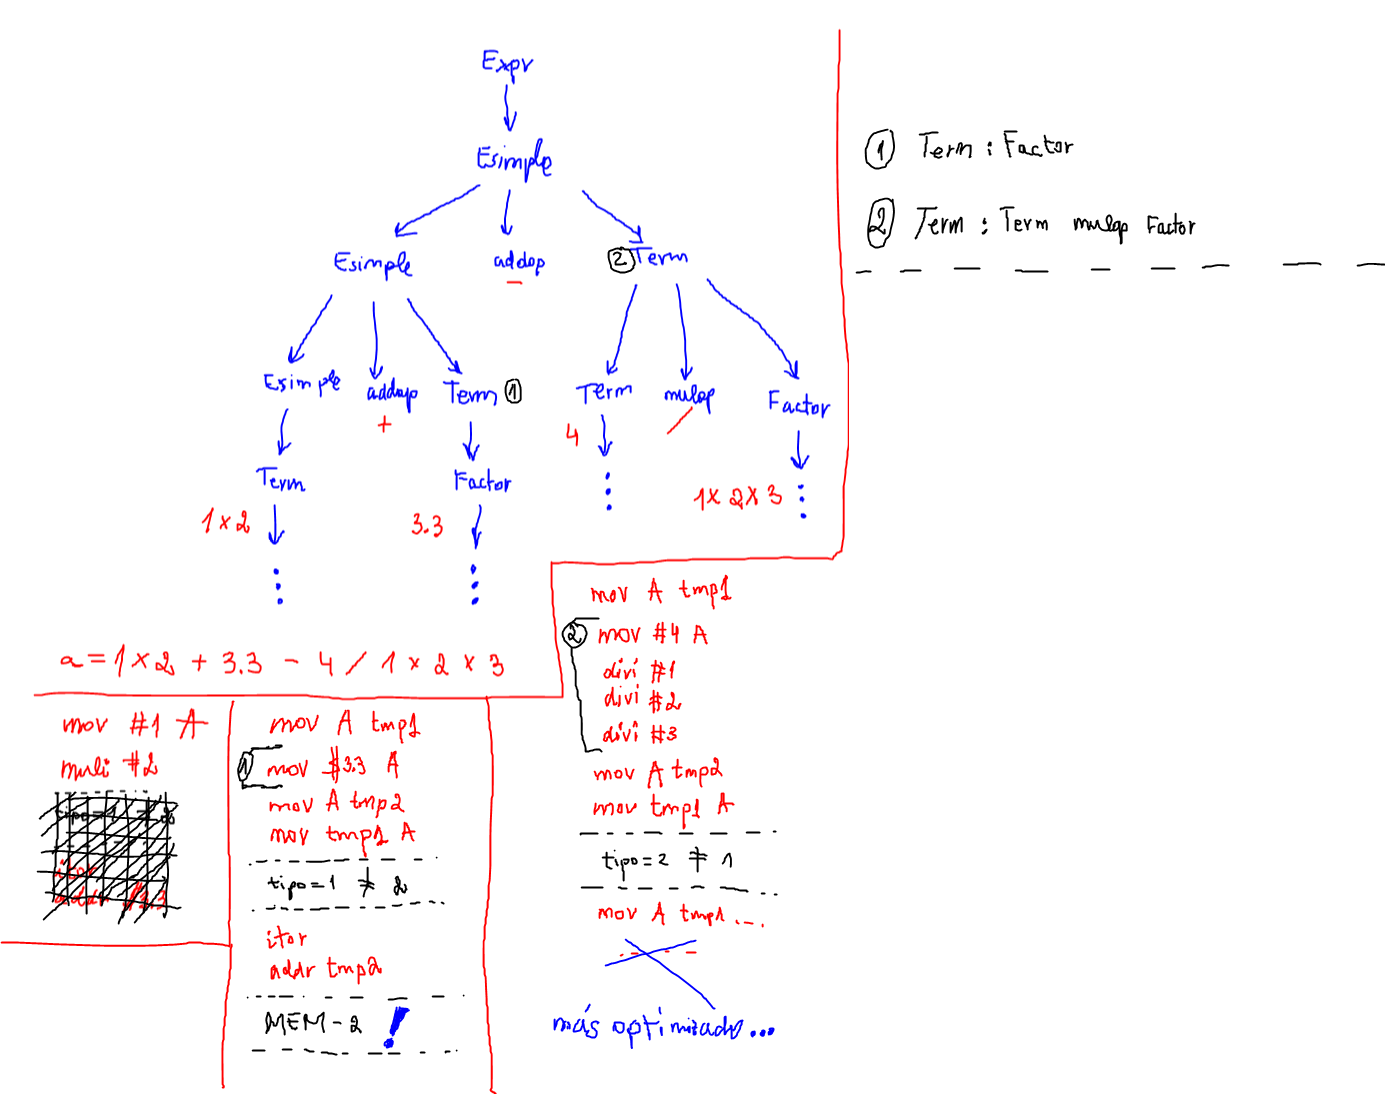 Expr
Esimple
Esimple addop ② Term
-
Esimple addop Term ①
+
Term mulop Factor
4 /
Term
1 x 2
Factor
3.3
1 x 2 x 3
① Term : Factor
② Term : Term mulop Factor
a = 1 x 2 + 3.3 - 4 / 1 x 2 x 3
mov #1 A
muli #2
itor
addr #3.3
mov A tmp1
① mov #3.3 A
mov A tmp2
mov tmp1 A
tipo=1 ≠ 2
itor
addr tmp2
MEM-2 !
mov A tmp1
② mov #4 A
divi #1
divi #2
divi #3
mov A tmp2
mov tmp1 A
tipo=2 ≠ 1
mov A tmp1 ...
más optimizado...